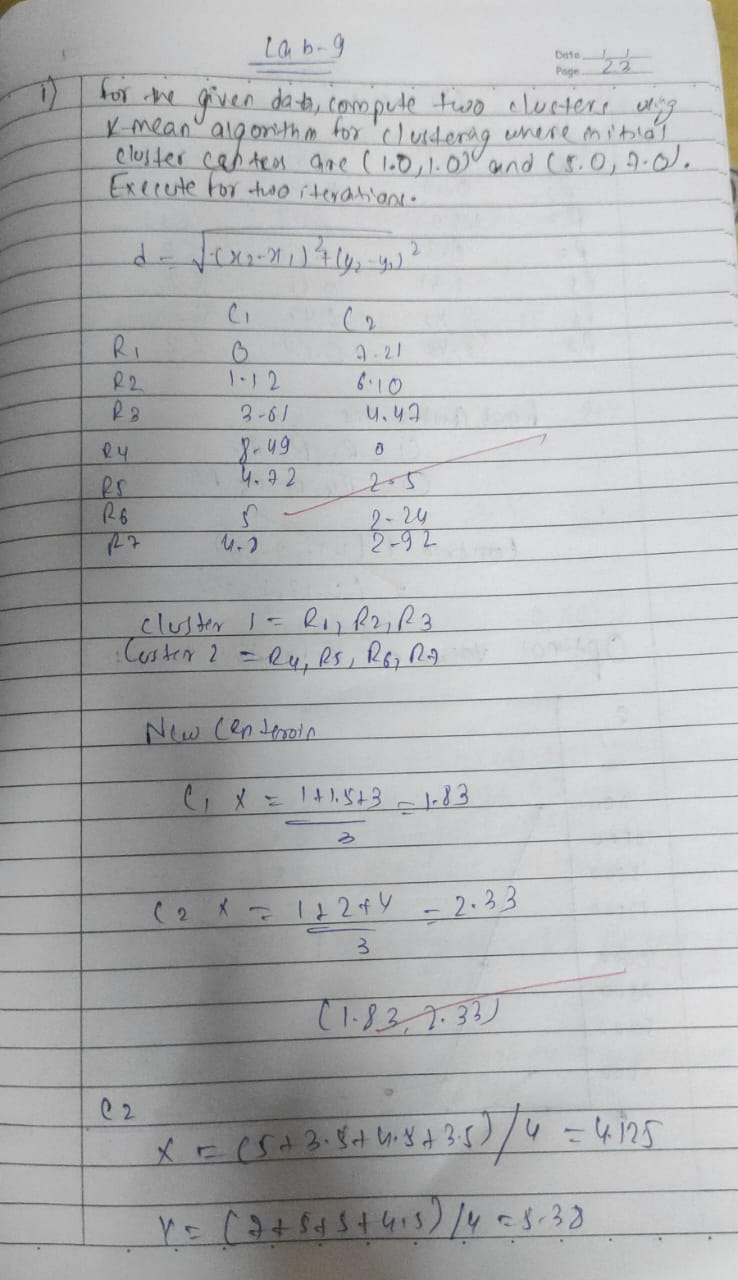 Lab-9
Date / /
Page 23
1) for the given data, compute two clusters using
K-mean algorithm for clustering where initial
cluster centers are (1.0, 1.0) and (5.0, 7.0).
Execute for two iterations.
d = √(x2-x1)²+(y2-y1)²
C1 C2
R1 0 7.21
R2 1.12 6.10
R3 3.61 4.47
R4 8.49 0
R5 4.72 2.5
R6 5 2.24
R7 4.3 2.92
Cluster 1 = R1, R2, R3
Custer 2 = R4, R5, R6, R7
New Centeroin
C1 x = 1+1.5+3 / 3 = 1.83
C2 x = 1+2+4 / 3 = 2.33
(1.83, 2.33)
C2
x = (5+3.5+4.5+3.5)/4 = 4.125
Y = (7+5+5+4.5)/4 = 5.38